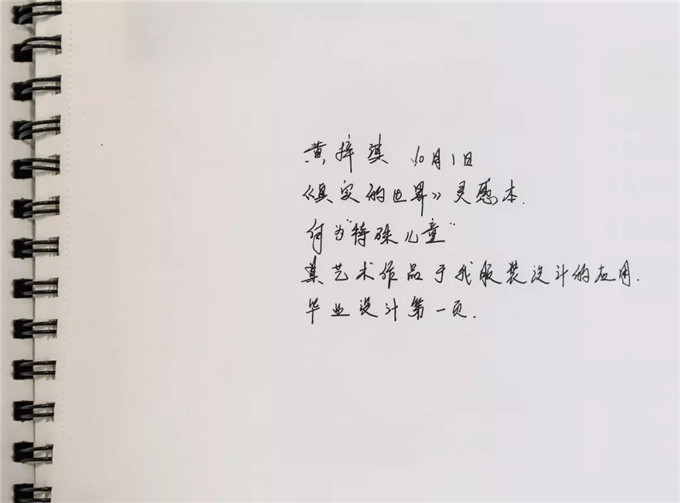 黄梓淇 10月1日
《真实的世界》灵感本.
何为"特殊儿童"
其艺术作品于我服装设计的应用.
毕业设计第一页.